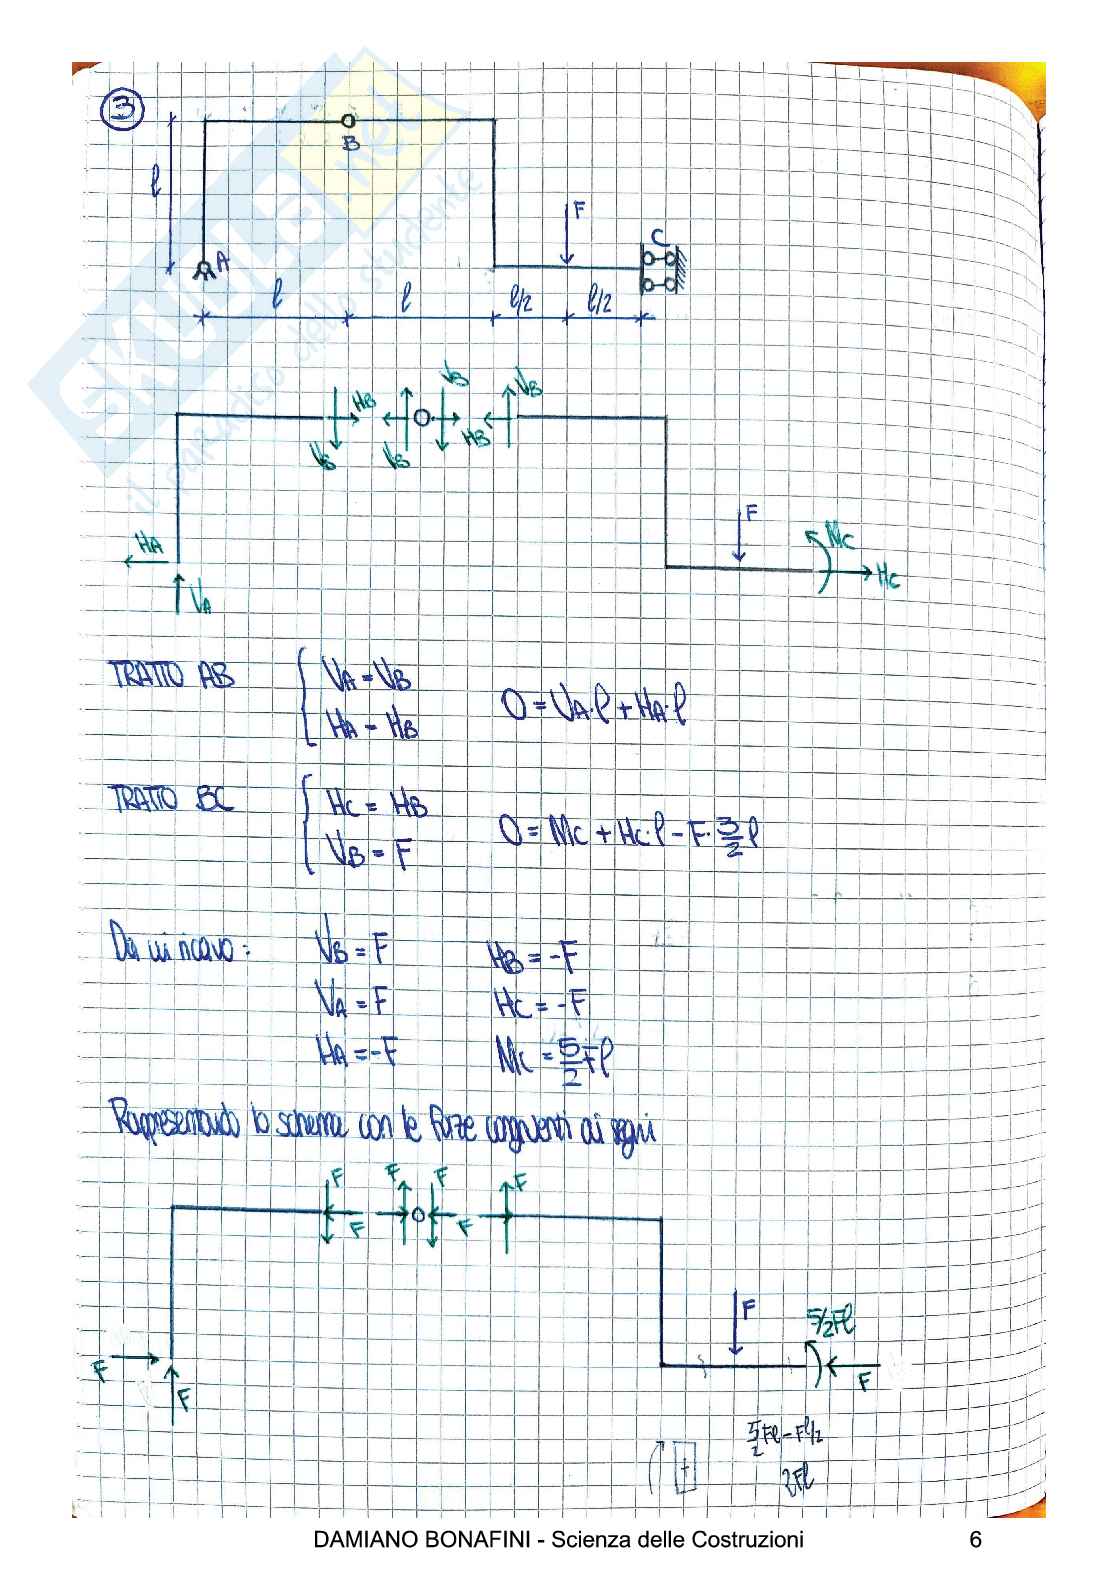 3
B
l
A
F
C
l
l
l/2
l/2
VB
HB
VB
HB
VB
VB
F
MC
HC
HA
VA
TRATTO AB
VA = VB
HA = HB
0 = VA·l + HA·l
TRATTO BC
HC = HB
VB = F
0 = MC + HC·l - F·3/2 l
Da cui ricavo:
VB = F
HB = -F
VA = F
HC = -F
HA = -F
MC = 5/2 Fl
Rappresentando lo schema con le forze congruenti ai segni
F
F
F
F
F
F
F
5/2Fl
F
F
F
5/2 Fl - Fl/2
2Fl
+
DAMIANO BONAFINI - Scienza delle Costruzioni
6
SKUOLA.net
il paradiso dello studente